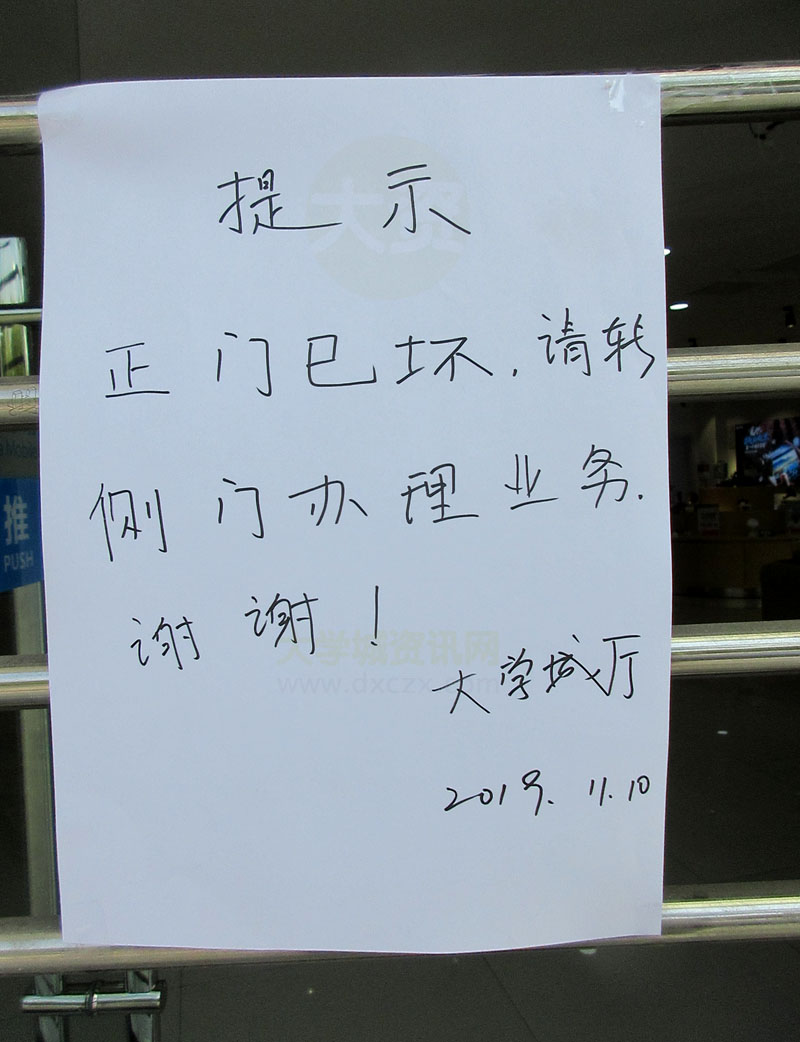 提示
正门已坏,请转
侧门办理业务.
谢谢!
大学城厅
2019.11.10
推
PUSH
大学城资讯网
www.dxczx.com